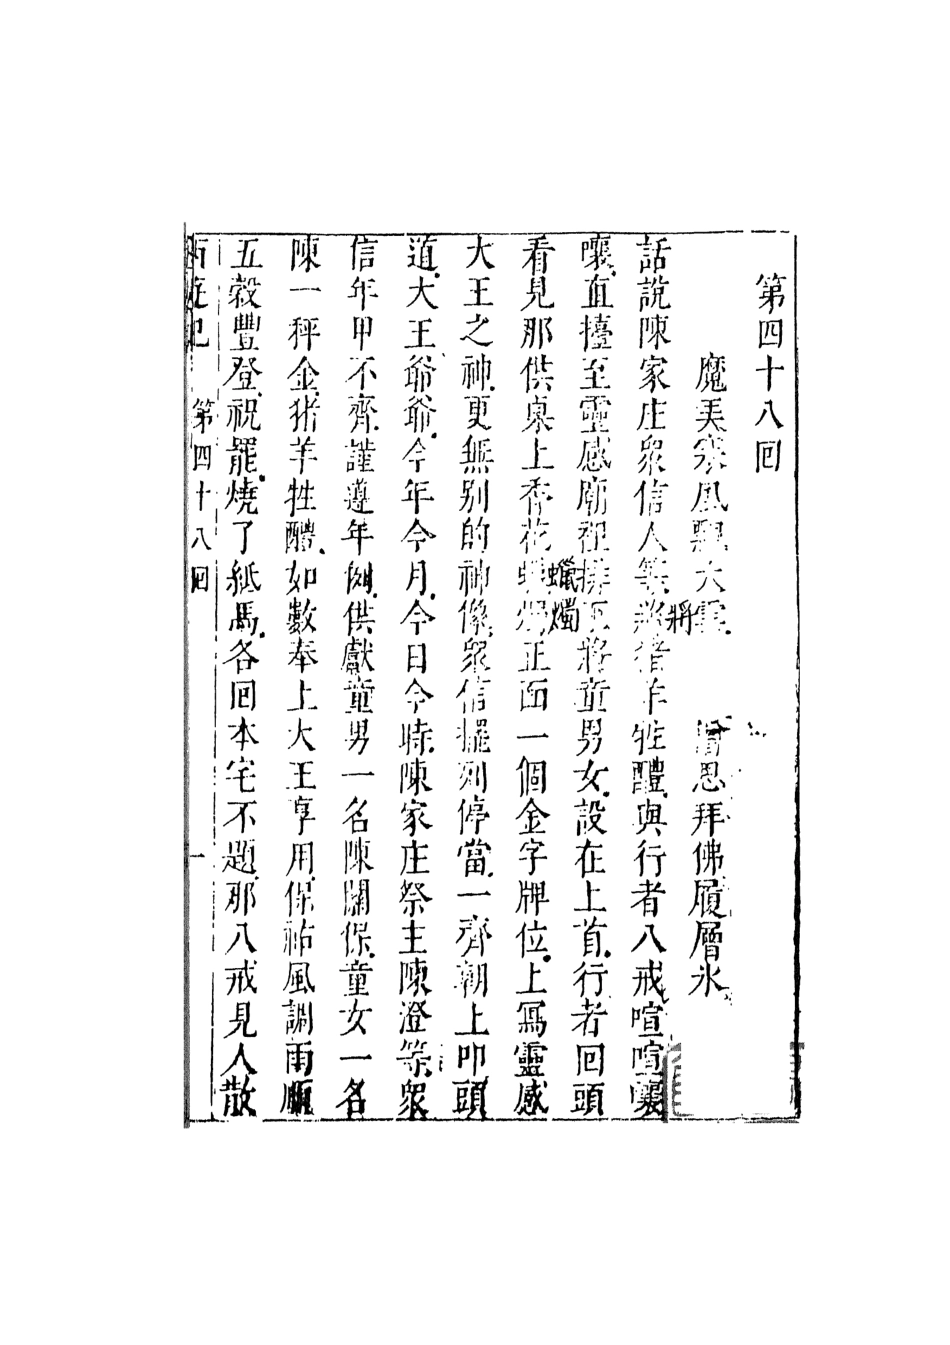 第四十八回
魔弄寒風飄大雪 僧思拜佛履層氷
話說陳家庄衆信人等將猪羊牲醴與行者八戒喧喧嚷
嚷直擡至靈感廟裡排下將童男女設在上首行者回頭
看見那供桌上香花蠟燭正面一個金字牌位上寫靈感
大王之神更無別的神像衆信擺列停當一齊朝上叩頭
道大王爺爺今年今月今日今時陳家庄祭主陳澄等衆
信年甲不齊謹遵年例供獻童男一名陳關保童女一名
陳一秤金猪羊牲醴如數奉上大王享用保祐風調雨順
五穀豐登祝罷燒了紙馬各回本宅不題那八戒見人散
西遊記 第四十八回 一
蠟燭
將